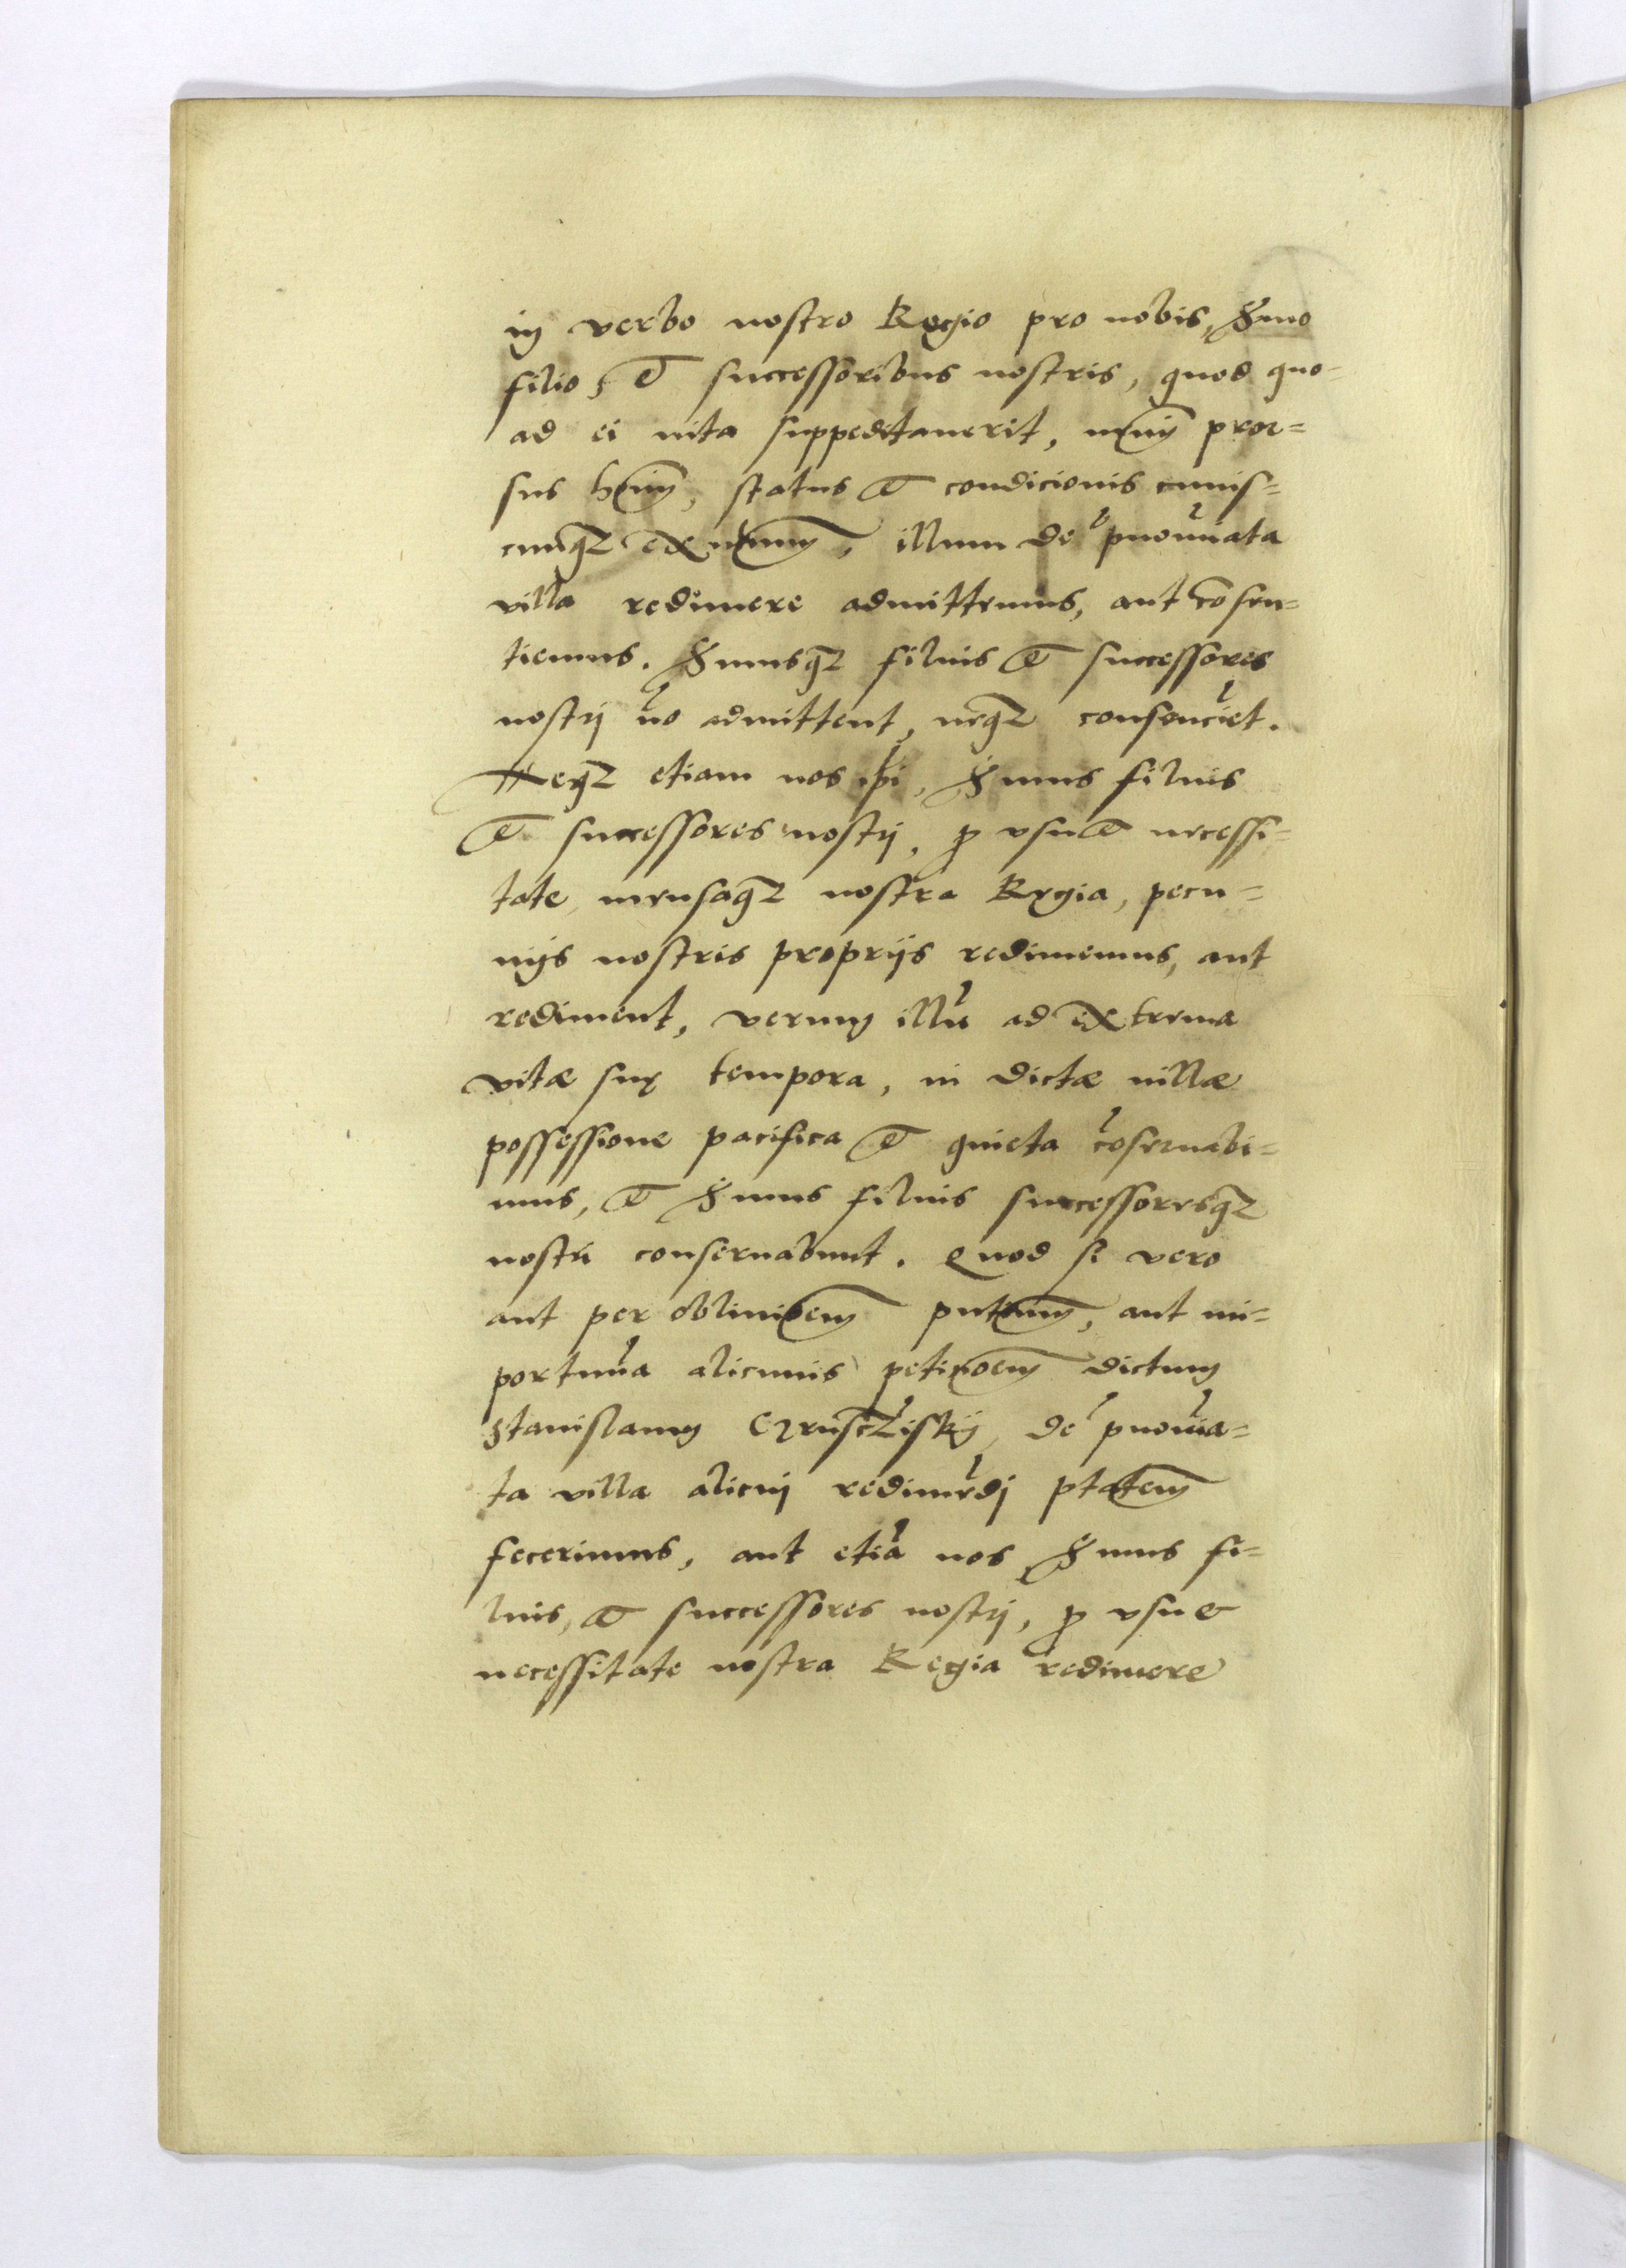 in verbo nostro Regio pro nobis, Ser̄mo
filio, et successoribus nostris, quod quo-
ad ei uita suppeditauerit, nemini pror-
sus hoīm, status et condicionis cuius-
cunqȝ illum de pnoīata
villa redimere admittemus, aut cōsen-
tiemus. Smusqȝ filius et successores
nostrj nō admittent, neqȝ consenciēt.
Neqȝ etiam nos ipi, Smus filius
et successores nostrj, p̱ vsu et necessi-
tate mensaqȝ nostra Regia, pecu-
nijs nostris proprijs redimemus, aut
rediment, verum illū ad extrema
vitæ suę tempora, in dictæ uillæ
possessione pacifica et quieta cōseruabi-
mus, et Smus filius successoresqȝ
nostri conseruabunt. Quod si vero
aut per obliuioēm aut im-
portunā alicuius petitioēm dictum
Stanislaum Czrusczisky, de pnoīa-
ta villa alicuj redimēdj ptātem
fecerimus, aut etiā nos Smus fi-
lius, et successores nostrj, p̱ vsu &
necessitate nostra Regia redimere